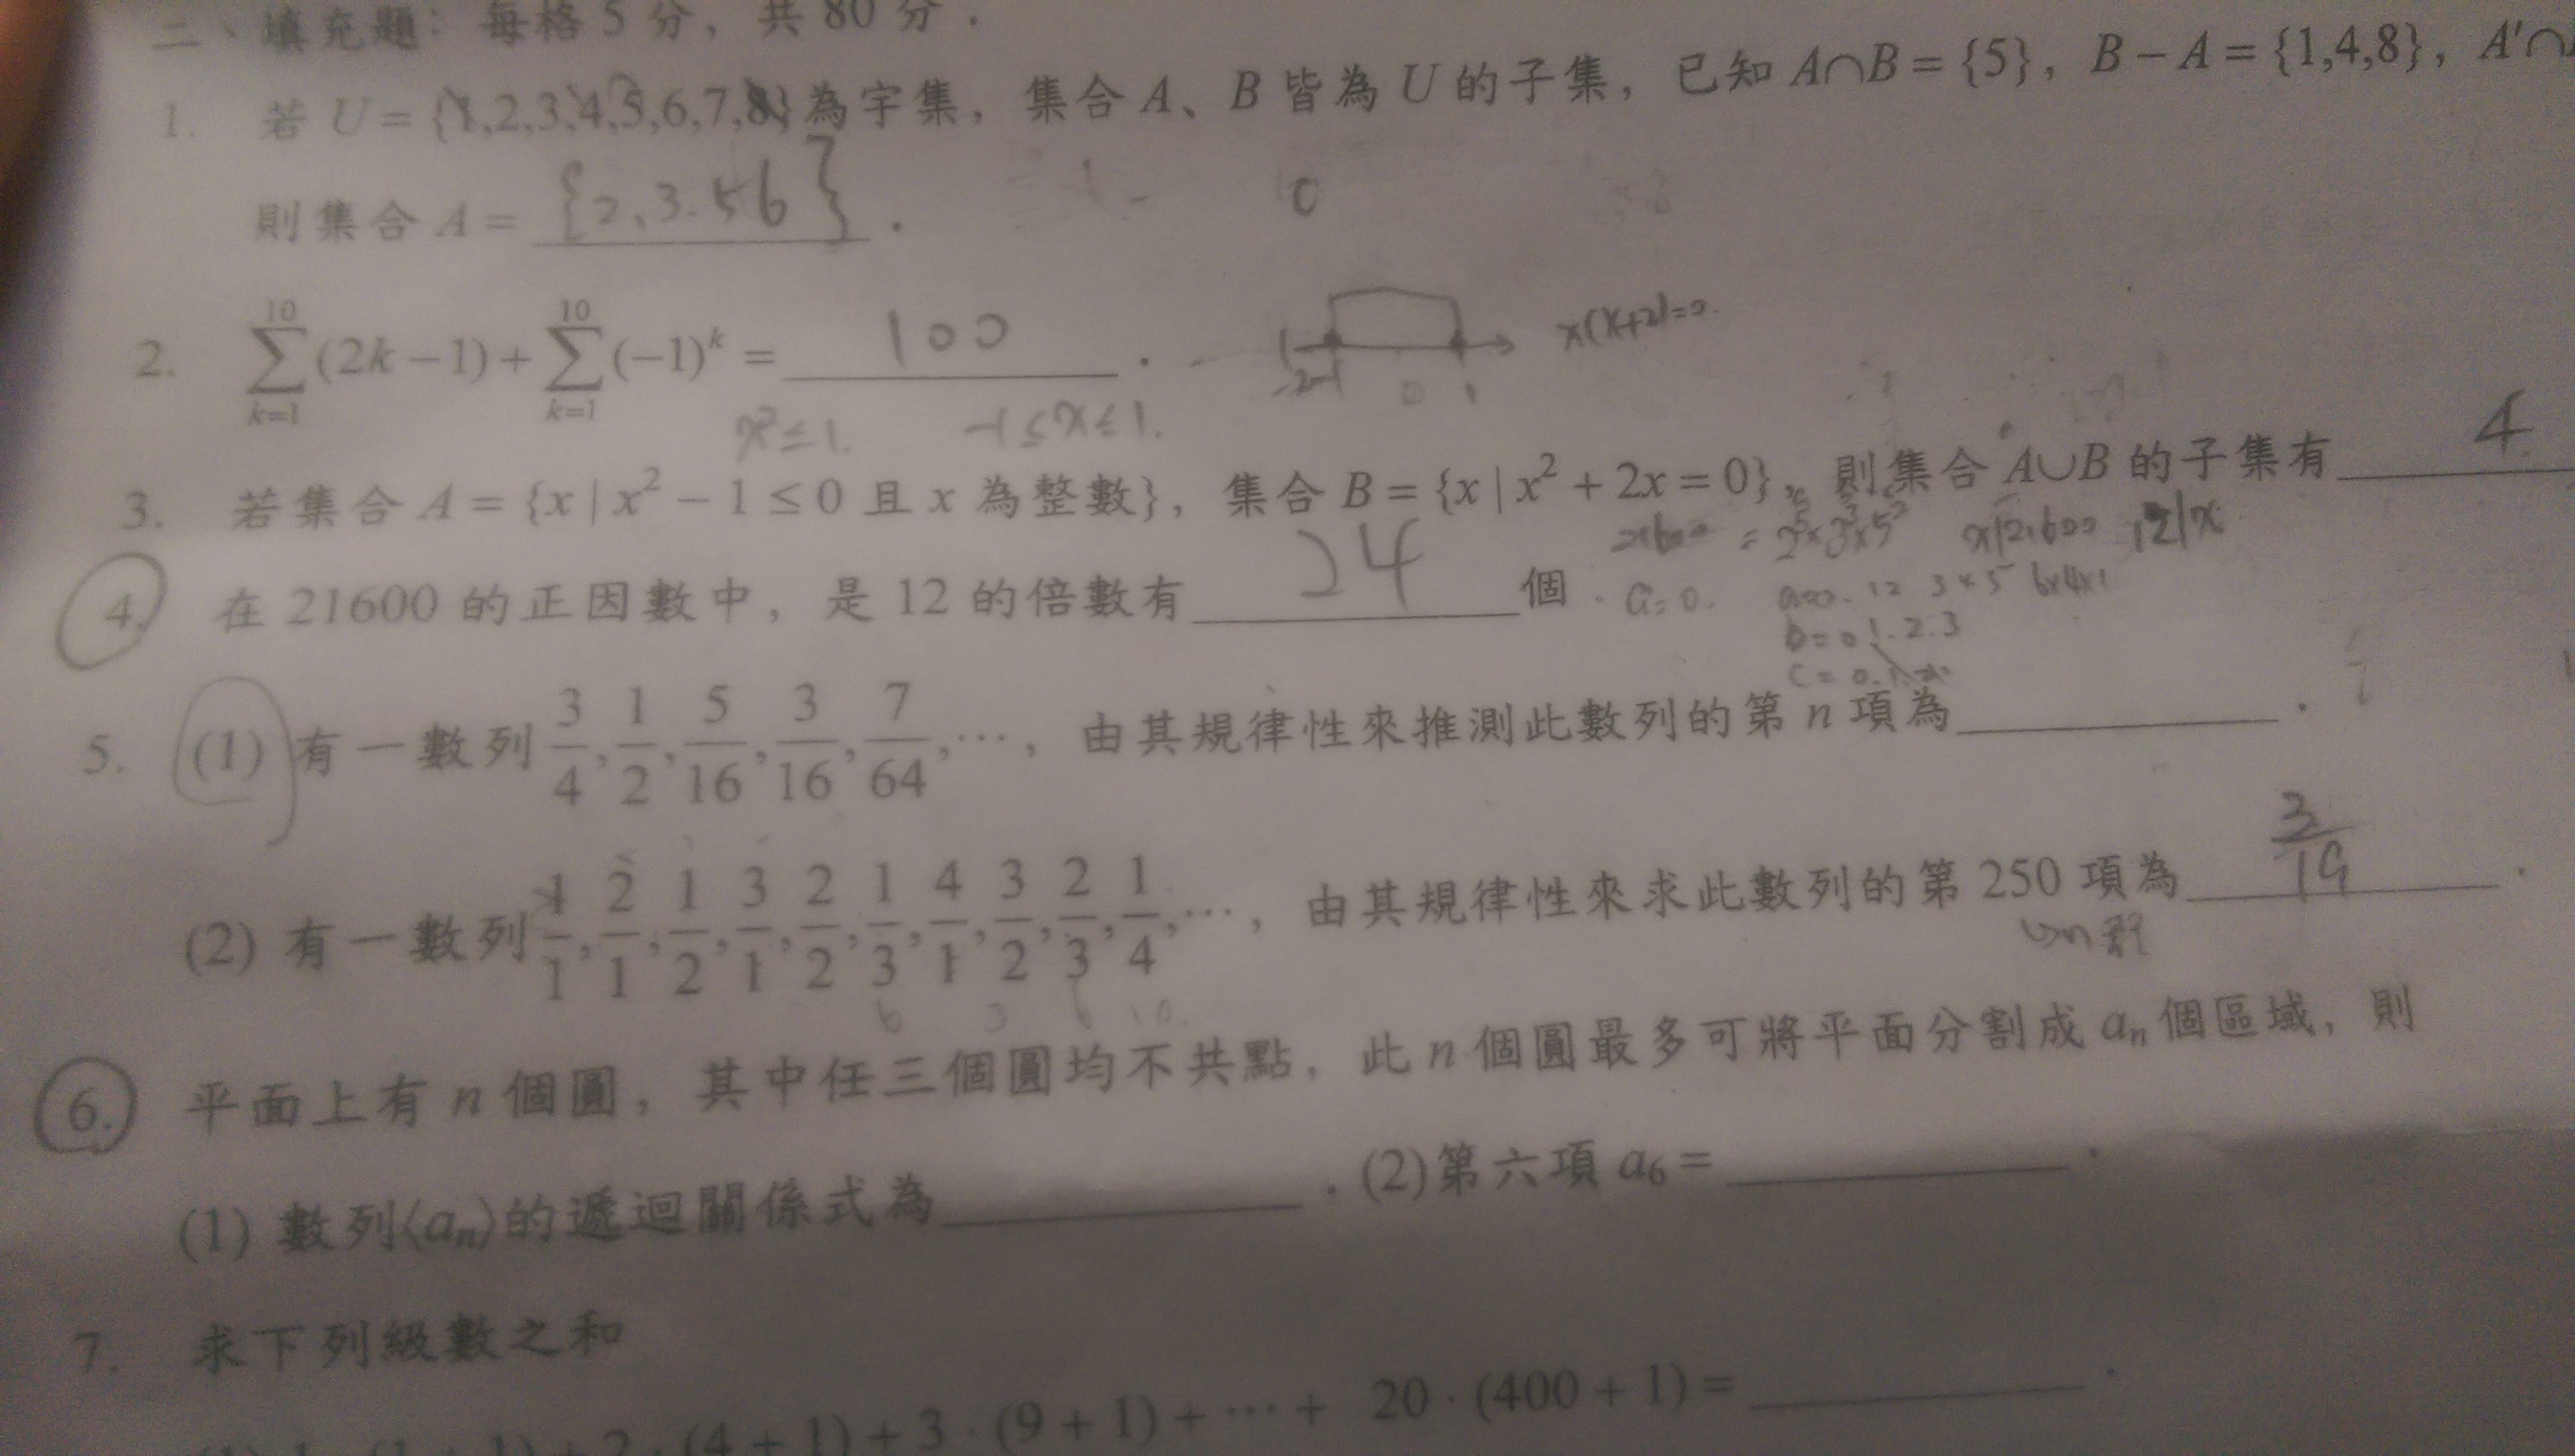 二、填充題：每格 5 分，共 80 分．
1. 若 U = {1,2,3,4,5,6,7,8} 為宇集，集合 A、B 皆為 U 的子集，已知 A∩B = {5}，B − A = {1,4,8}，A'∩
則集合 A = {2,3.5 6}．
0
2. \sum_{k=1}^{10}(2k−1)+\sum_{k=1}^{10}(−1)^k = 100．
-2 -1 0 1
x(x+2)=0.
x² ≤ 1. -1 ≤ x ≤ 1.
3. 若集合 A = {x | x² − 1 ≤ 0 且 x 為整數}，集合 B = {x | x² + 2x = 0}，則集合 A∪B 的子集有 4
21600 = 2⁵×3³×5² x|21600 12|x
4. 在 21600 的正因數中，是 12 的倍數有 24 個．
a=0. a=0.1 2 3 4 5 6x4x1
b=0 1.2.3
c=0.1.2
5. (1) 有一數列 3/4, 1/2, 5/16, 3/16, 7/64, ⋯，由其規律性來推測此數列的第 n 項為．
(2) 有一數列 1/1, 2/1, 1/2, 3/1, 2/2, 1/3, 4/1, 3/2, 2/3, 1/4, ⋯，由其規律性來求此數列的第 250 項為 3/19．
6 3 6 10.
6. 平面上有 n 個圓，其中任三個圓均不共點，此 n 個圓最多可將平面分割成 aₙ 個區域，則
(1) 數列⟨aₙ⟩的遞迴關係式為．(2)第六項 a₆ =．
7. 求下列級數之和
(1) 1·(1+1)+2·(4+1)+3·(9+1)+⋯+ 20·(400+1) =．